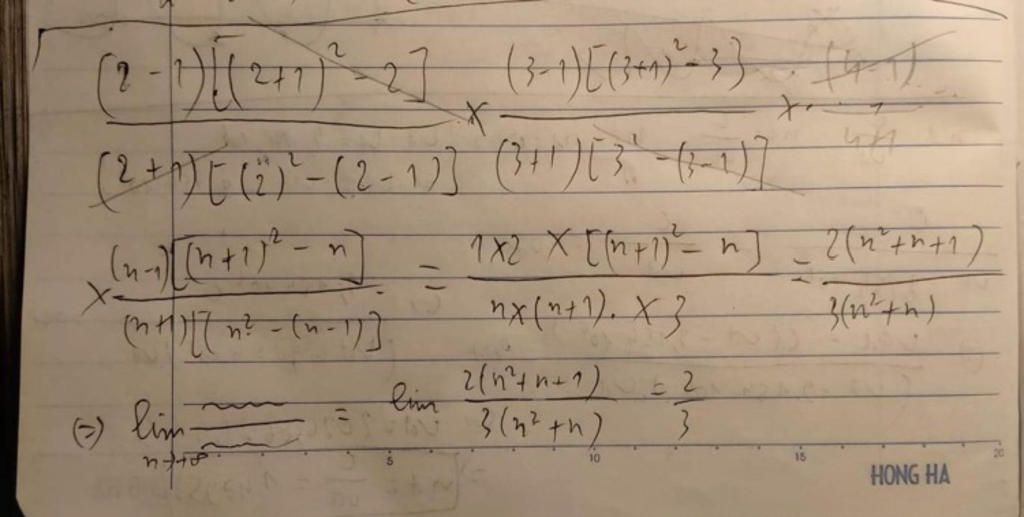 (2-1)[(2+1)² - 2] / (2+1)[(2)² - (2-1)] × (3-1)[(3+1)² - 3] / (3+1)[3² - (3-1)] × · (4-1)
× (n-1)[(n+1)² - n] / (n+1)[n² - (n-1)] = 1×2 × [(n+1)² - n] / n×(n+1). ×3 = 2(n²+n+1) / 3(n²+n)
(=) lim n→+∞ = lim 2(n²+n+1) / 3(n²+n) = 2/3
5 10 15 20
HONG HA